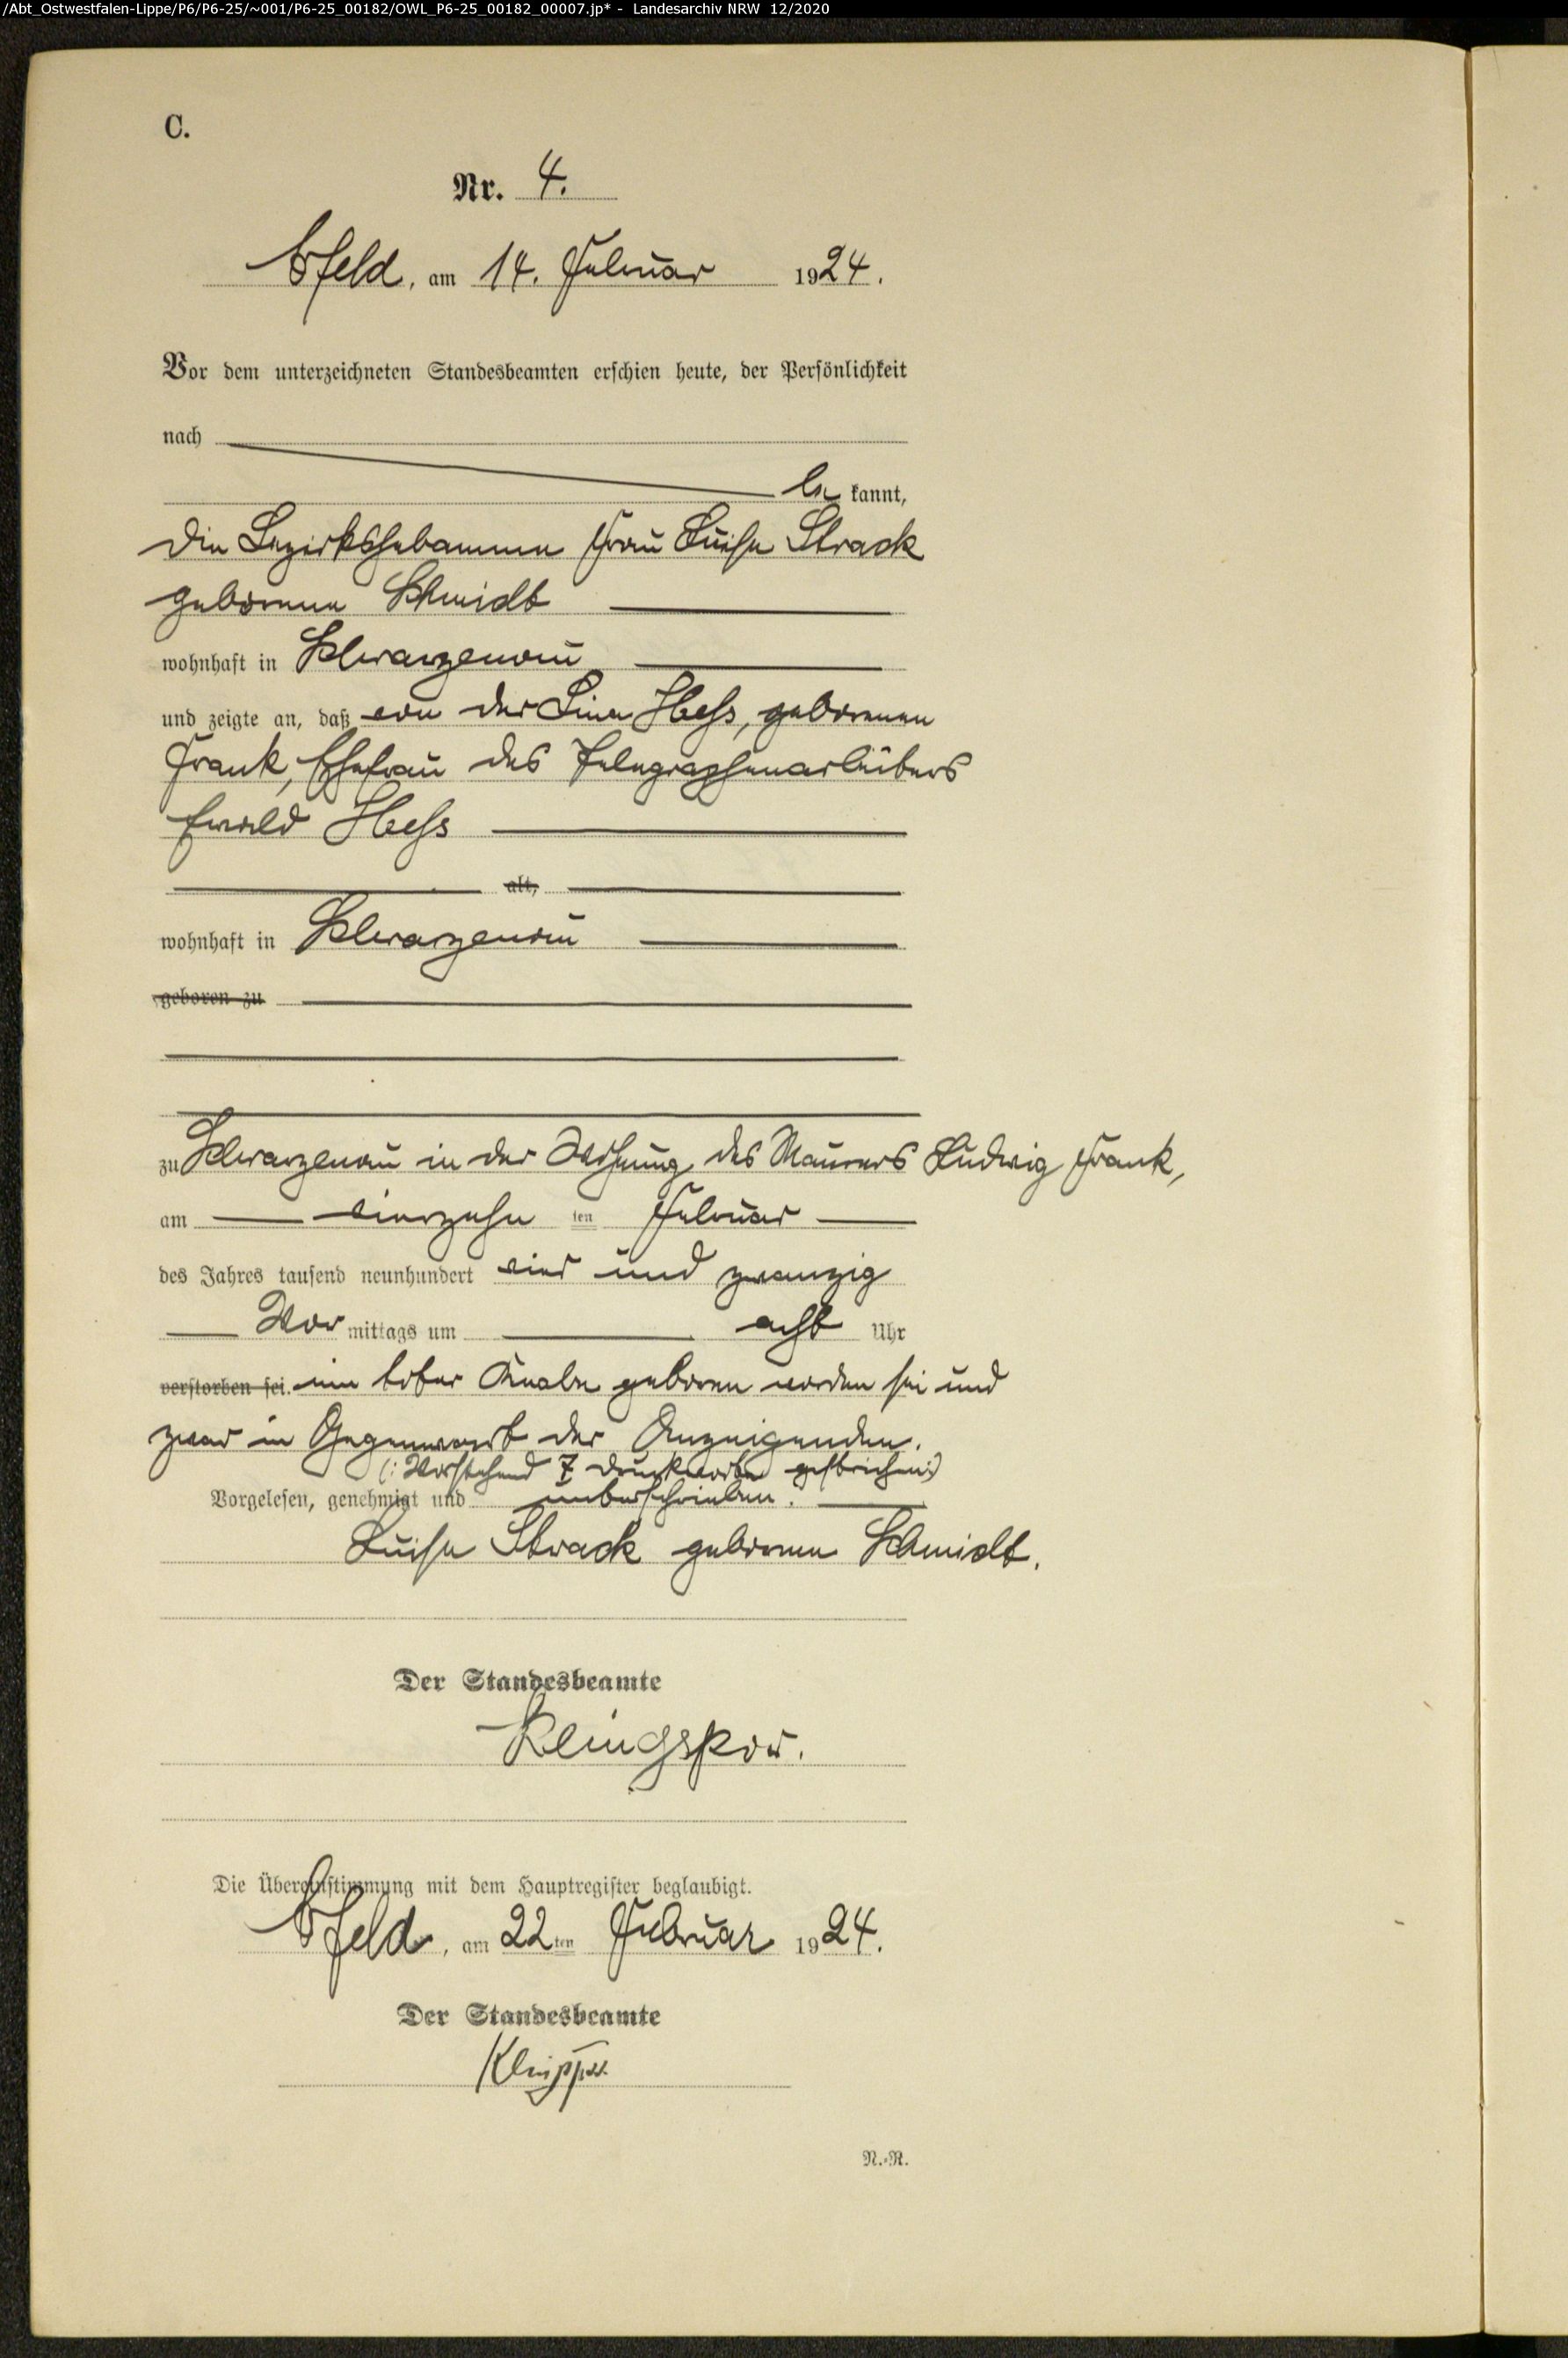 /Abt_Ostwestfalen-Lippe/P6/P6-25/~001/P6-25_00182/OWL_P6-25_00182_00007.jp* - Landesarchiv NRW 12/2020
C.
Nr. 4.
Elsfeld, am 14. Februar 1924.
Vor dem unterzeichneten Standesbeamten erschien heute, der Persönlichkeit
nach
be kannt,
die Bezirkshebamme Frau Luise Strack
geborene Schmidt
wohnhaft in Schwarzenau
und zeigte an, daß von der Lina Hess, geborenen
Frank, Ehefrau des Telegraphenarbeiters
Ewald Hess
alt,
wohnhaft in Schwarzenau
geboren zu
zu Schwarzenau in der Wohnung des Maurers Ludwig Frank,
am vierzehn ten Februar
des Jahres tausend neunhundert vier und zwanzig
Vor mittags um acht Uhr
verstorben sei. ein toter Knabe geboren worden sei und
zwar in Gegenwart der Anzeigenden.
(: Vorstehend 7 Druckworte gestrichen :)
Vorgelesen, genehmigt und unterschrieben.
Luise Strack geborene Schmidt.
Der Standesbeamte
Klingspor.
Die Übereinstimmung mit dem Hauptregister beglaubigt.
Elsfeld, am 22 ten Februar 1924.
Der Standesbeamte
Klingspor.
N.-R.